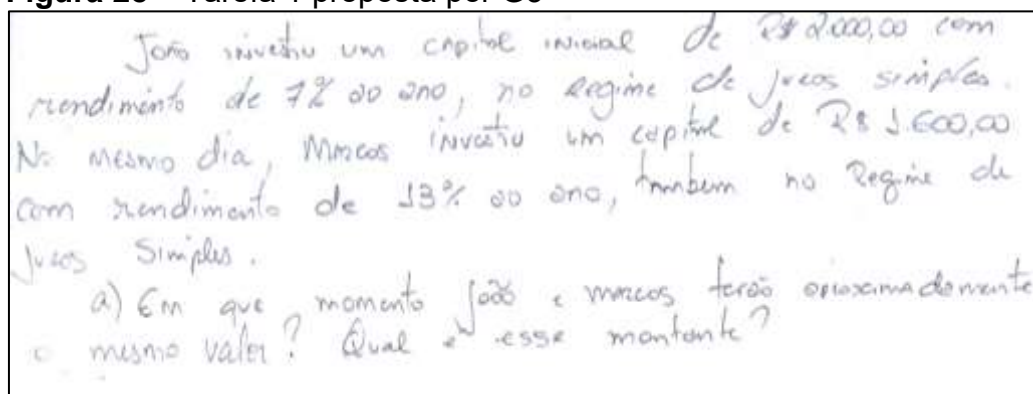 Figura 28 – Tarefa 1 proposta por G3
João investiu um capital inicial de R$ 2.000,00 com
rendimento de 7% ao ano, no Regime de juros simples.
No mesmo dia, Marcos investiu um capital de R$ 1.600,00
com rendimento de 13% ao ano, também no Regime de
juros Simples.
a) Em que momento João e marcos terão aproximadamente
o mesmo valor? Qual é esse montante?